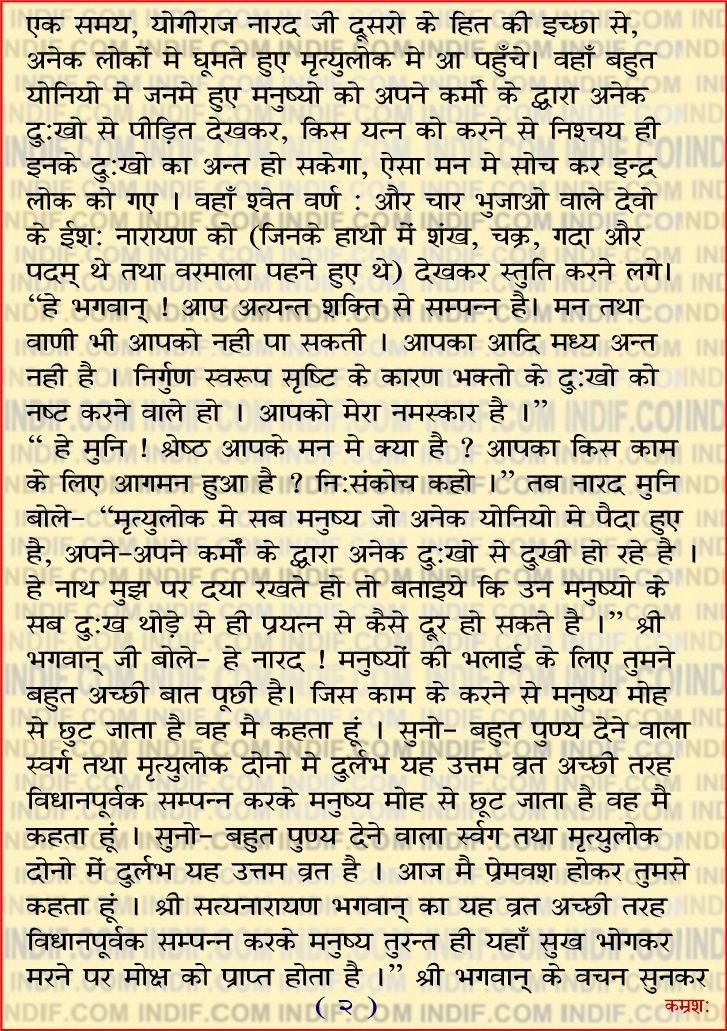 एक समय, योगीराज नारद जी दूसरो के हित की इच्छा से,
अनेक लोकों मे घूमते हुए मृत्युलोक मे आ पहुँचे। वहाँ बहुत
योनियो मे जनमे हुए मनुष्यो को अपने कर्मो के द्वारा अनेक
दु:खो से पीड़ित देखकर, किस यत्न को करने से निश्चय ही
इनके दु:खो का अन्त हो सकेगा, ऐसा मन मे सोच कर इन्द्र
लोक को गए । वहाँ श्वेत वर्ण : और चार भुजाओ वाले देवो
के ईश: नारायण को (जिनके हाथो में शंख, चक्र, गदा और
पदम् थे तथा वरमाला पहने हुए थे) देखकर स्तुति करने लगे।
“हे भगवान् ! आप अत्यन्त शक्ति से सम्पन्न है। मन तथा
वाणी भी आपको नही पा सकती । आपका आदि मध्य अन्त
नही है । निर्गुण स्वरूप सृष्टि के कारण भक्तो के दु:खो को
नष्ट करने वाले हो । आपको मेरा नमस्कार है ।”
“ हे मुनि ! श्रेष्ठ आपके मन मे क्या है ? आपका किस काम
के लिए आगमन हुआ है ? नि:संकोच कहो ।” तब नारद मुनि
बोले- “मृत्युलोक मे सब मनुष्य जो अनेक योनियो मे पैदा हुए
है, अपने-अपने कर्मों के द्वारा अनेक दु:खो से दुखी हो रहे है ।
हे नाथ मुझ पर दया रखते हो तो बताइये कि उन मनुष्यो के
सब दु:ख थोड़े से ही प्रयत्न से कैसे दूर हो सकते है ।” श्री
भगवान् जी बोले- हे नारद ! मनुष्यों की भलाई के लिए तुमने
बहुत अच्छी बात पूछी है। जिस काम के करने से मनुष्य मोह
से छुट जाता है वह मै कहता हूं । सुनो- बहुत पुण्य देने वाला
स्वर्ग तथा मृत्युलोक दोनो मे दुर्लभ यह उत्तम व्रत अच्छी तरह
विधानपूर्वक सम्पन्न करके मनुष्य मोह से छूट जाता है वह मै
कहता हूं । सुनो- बहुत पुण्य देने वाला स्र्वग तथा मृत्युलोक
दोनो में दुर्लभ यह उत्तम व्रत है । आज मै प्रेमवश होकर तुमसे
कहता हूं । श्री सत्यनारायण भगवान् का यह व्रत अच्छी तरह
विधानपूर्वक सम्पन्न करके मनुष्य तुरन्त ही यहाँ सुख भोगकर
मरने पर मोक्ष को प्राप्त होता है ।” श्री भगवान् के वचन सुनकर
( २ ) कम्रश: